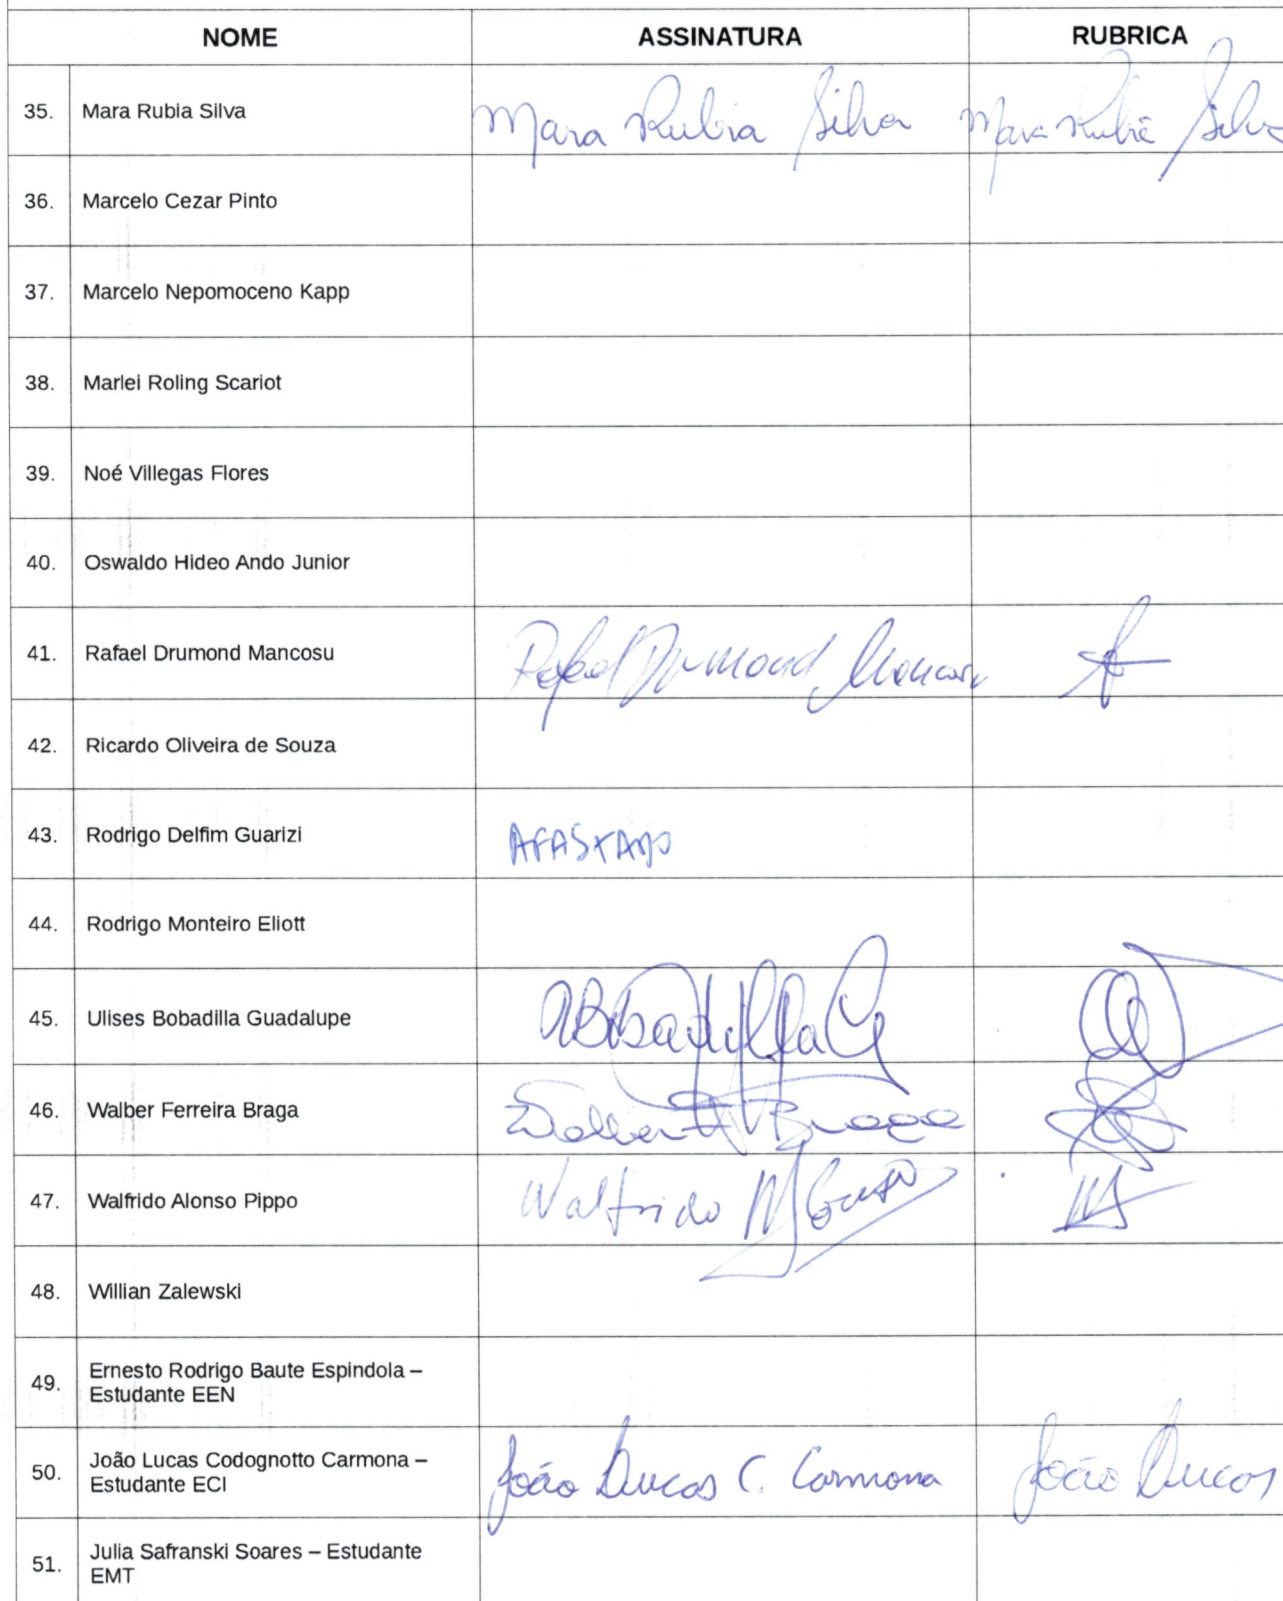 NOME ASSINATURA RUBRICA
35. Mara Rubia Silva Mara Rubia Silva Mara Rubia Silva
36. Marcelo Cezar Pinto
37. Marcelo Nepomoceno Kapp
38. Marlei Roling Scariot
39. Noé Villegas Flores
40. Oswaldo Hideo Ando Junior
41. Rafael Drumond Mancosu Rafael Drumond Mancosu
42. Ricardo Oliveira de Souza
43. Rodrigo Delfim Guarizi AFASTADO
44. Rodrigo Monteiro Eliott
45. Ulises Bobadilla Guadalupe
46. Walber Ferreira Braga Walber F Braga
47. Walfrido Alonso Pippo Walfrido Alonso
48. Willian Zalewski
49. Ernesto Rodrigo Baute Espindola –
Estudante EEN
50. João Lucas Codognotto Carmona – João Lucas C. Carmona João Lucas
Estudante ECI
51. Julia Safranski Soares – Estudante
EMT